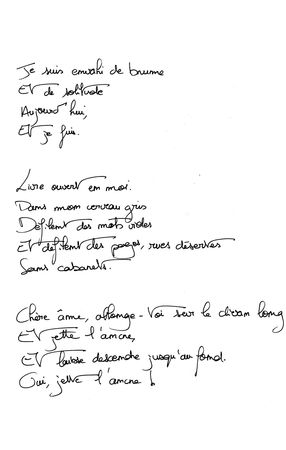 Je suis envahi de brume
Et de solitude
Aujourd'hui,
Et je fuis.
Livre ouvert en moi.
Dans mon cerveau gris
Défilent des mots vides
Et défilent des pages, rues désertes
Sans cabarets.
Chère âme, allonge-toi sur le divan long
Et jette l'ancre,
Et laisse descendre jusqu'au fond.
Oui, jette l'ancre !